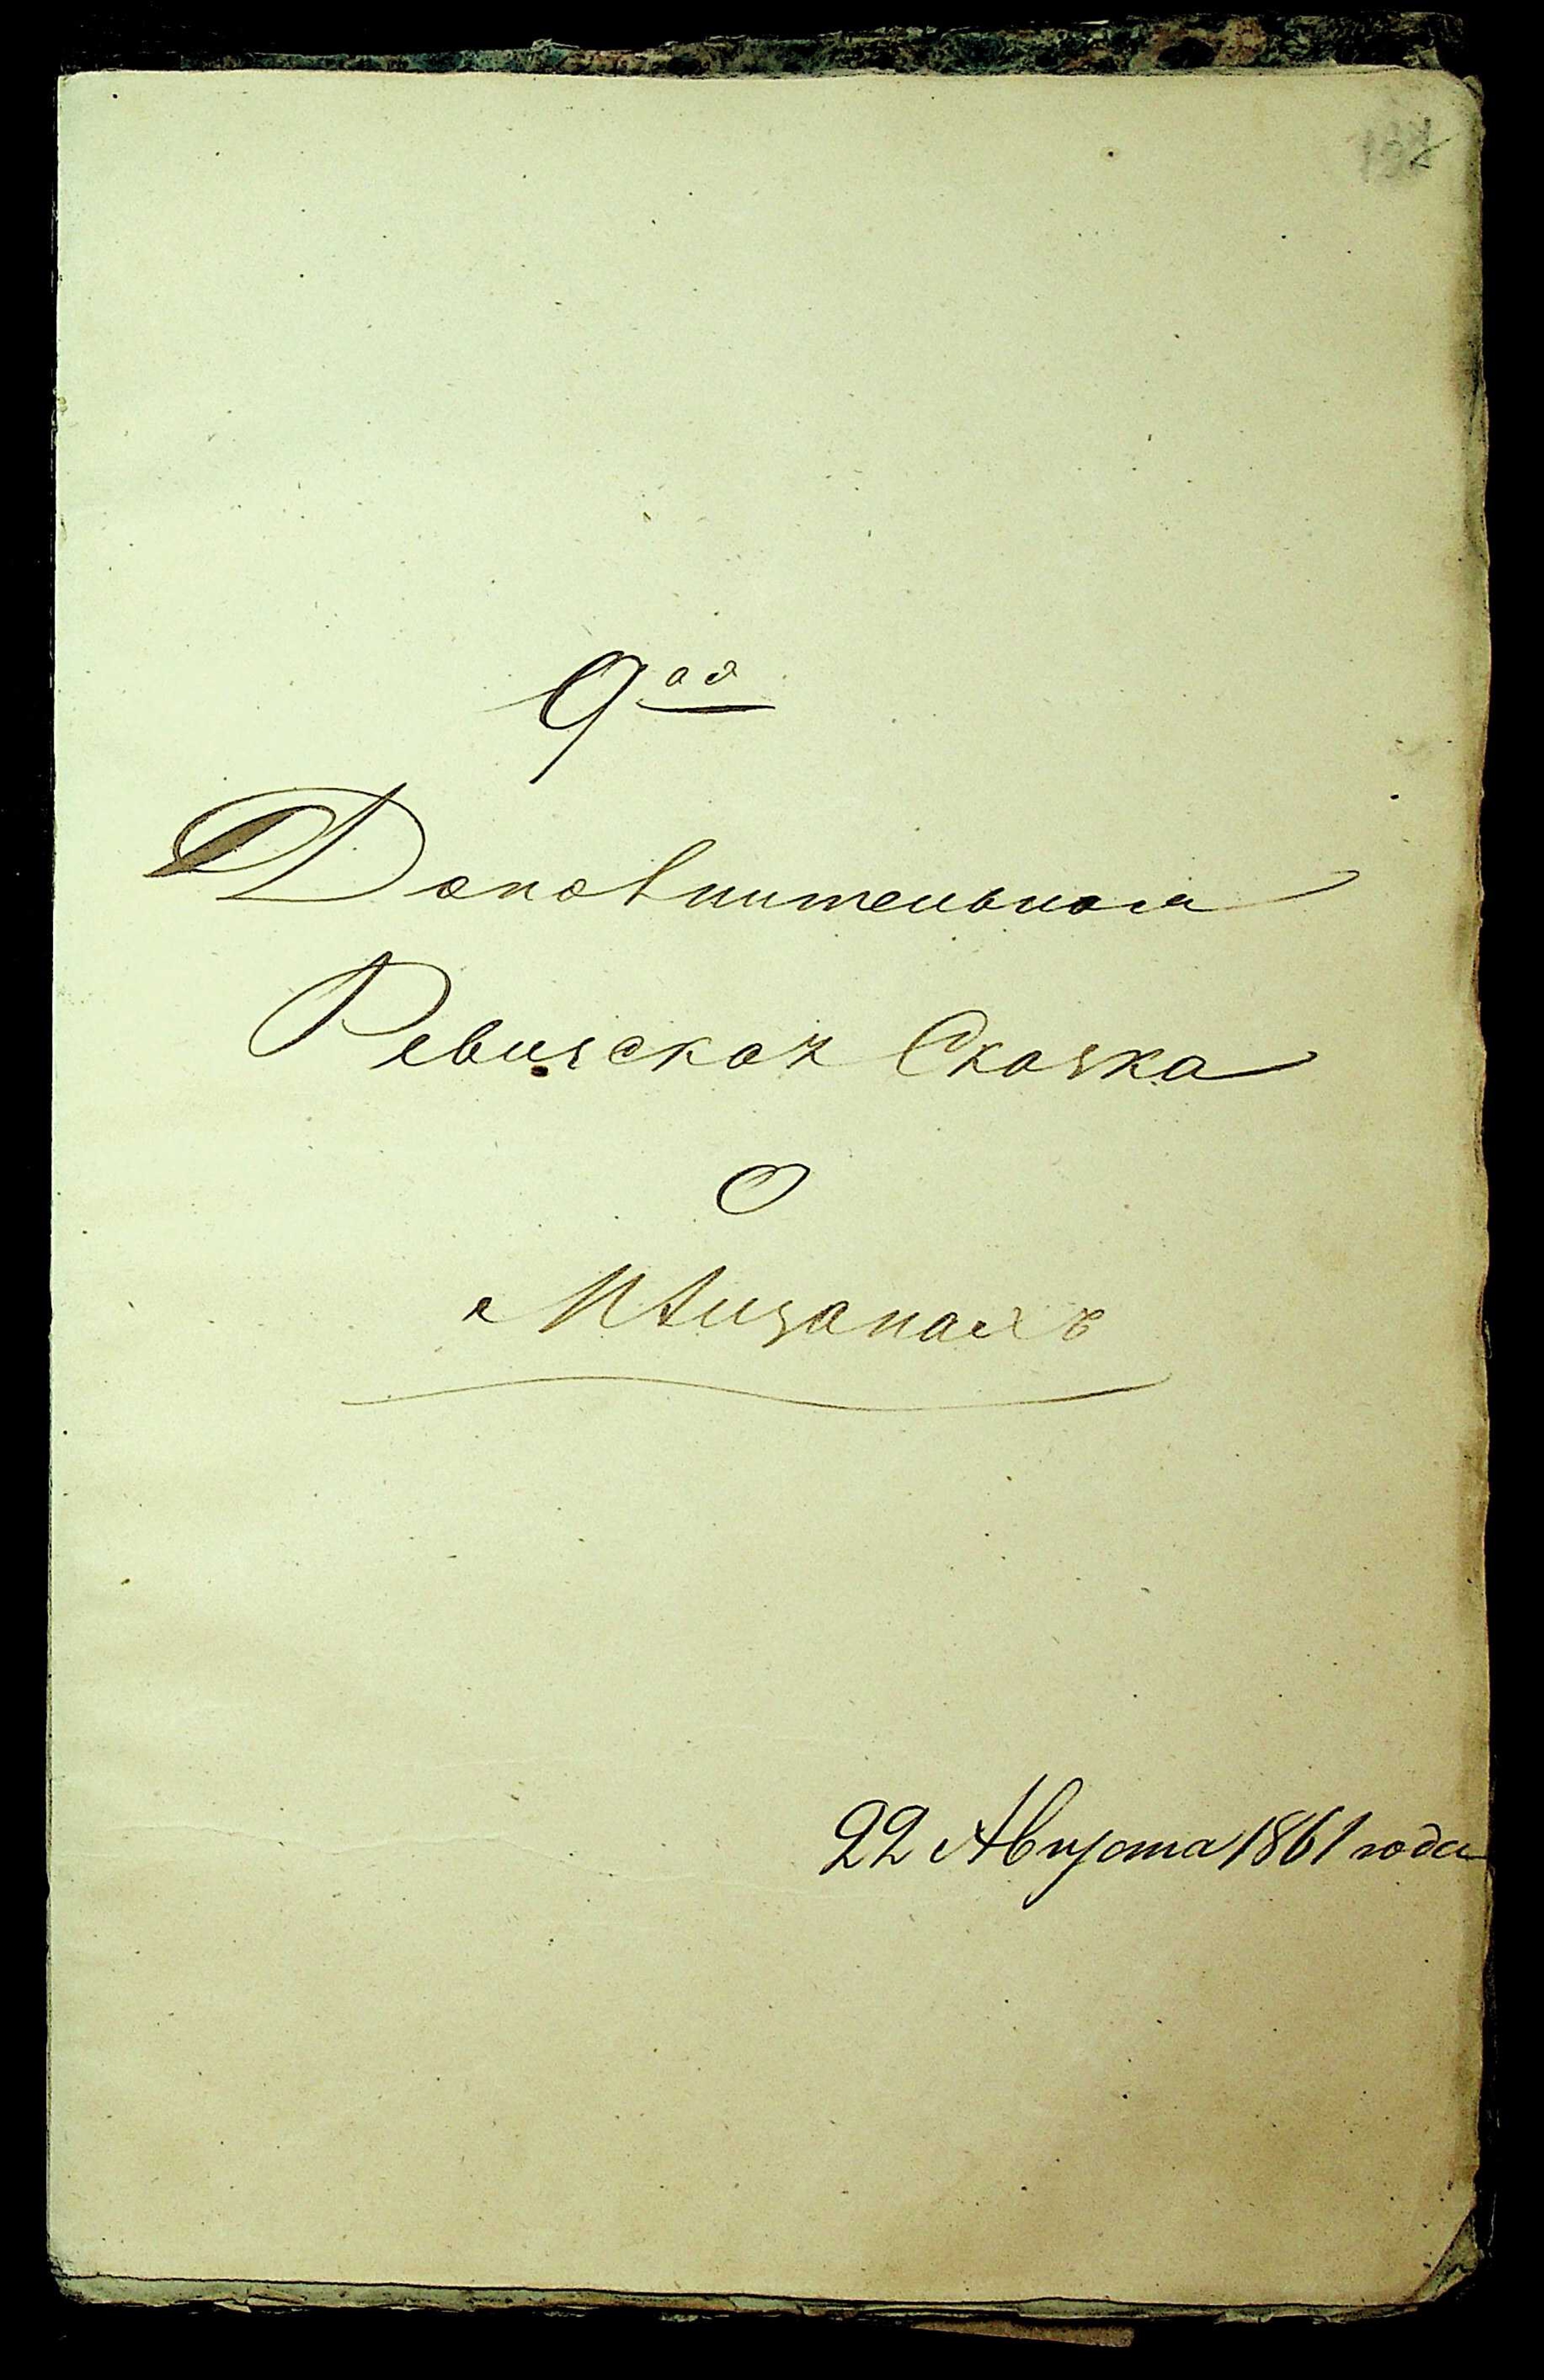 9ая
Дополнительная
Ревизская Сказка
о
Мѣщанахъ
22 Августа 1861 года